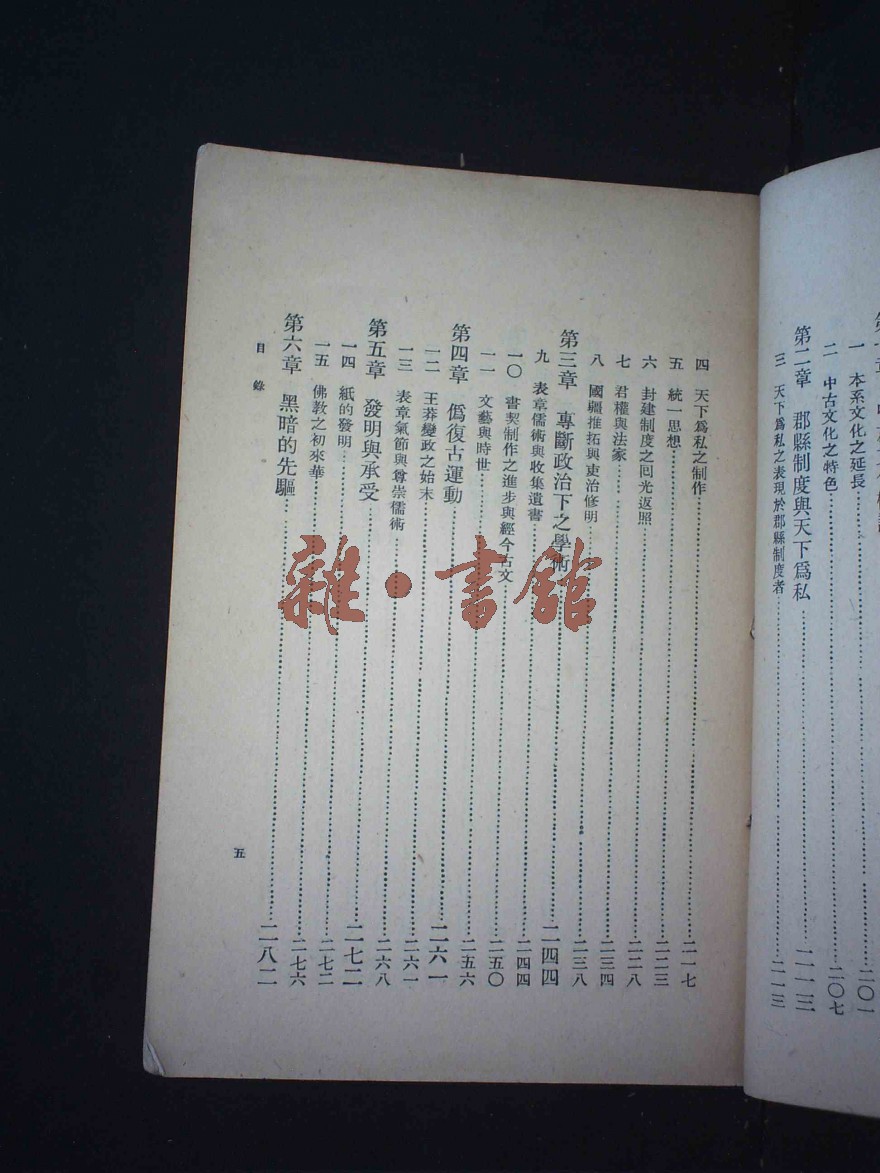 一 本系文化之延長 二〇一
二 中古文化之特色 二〇七
第二章 郡縣制度與天下爲私 二一三
三 天下爲私之表現於郡縣制度者 二一三
四 天下爲私之制作 二一七
五 統一思想 二二三
六 封建制度之回光返照 二二八
七 君權與法家 二三四
八 國疆推拓與吏治修明 二三八
第三章 專斷政治下之學術 二四四
九 表章儒術與收集遺書 二四四
一〇 書契制作之進步與經今古文 二五〇
一一 文藝與時世 二五六
第四章 僞復古運動 二六一
一二 王莽變政之始末 二六一
一三 表章氣節與尊崇儒術 二六八
第五章 發明與承受 二七二
一四 紙的發明 二七二
一五 佛教之初來華 二七六
第六章 黑暗的先驅 二八二
目錄
五
雜·書館